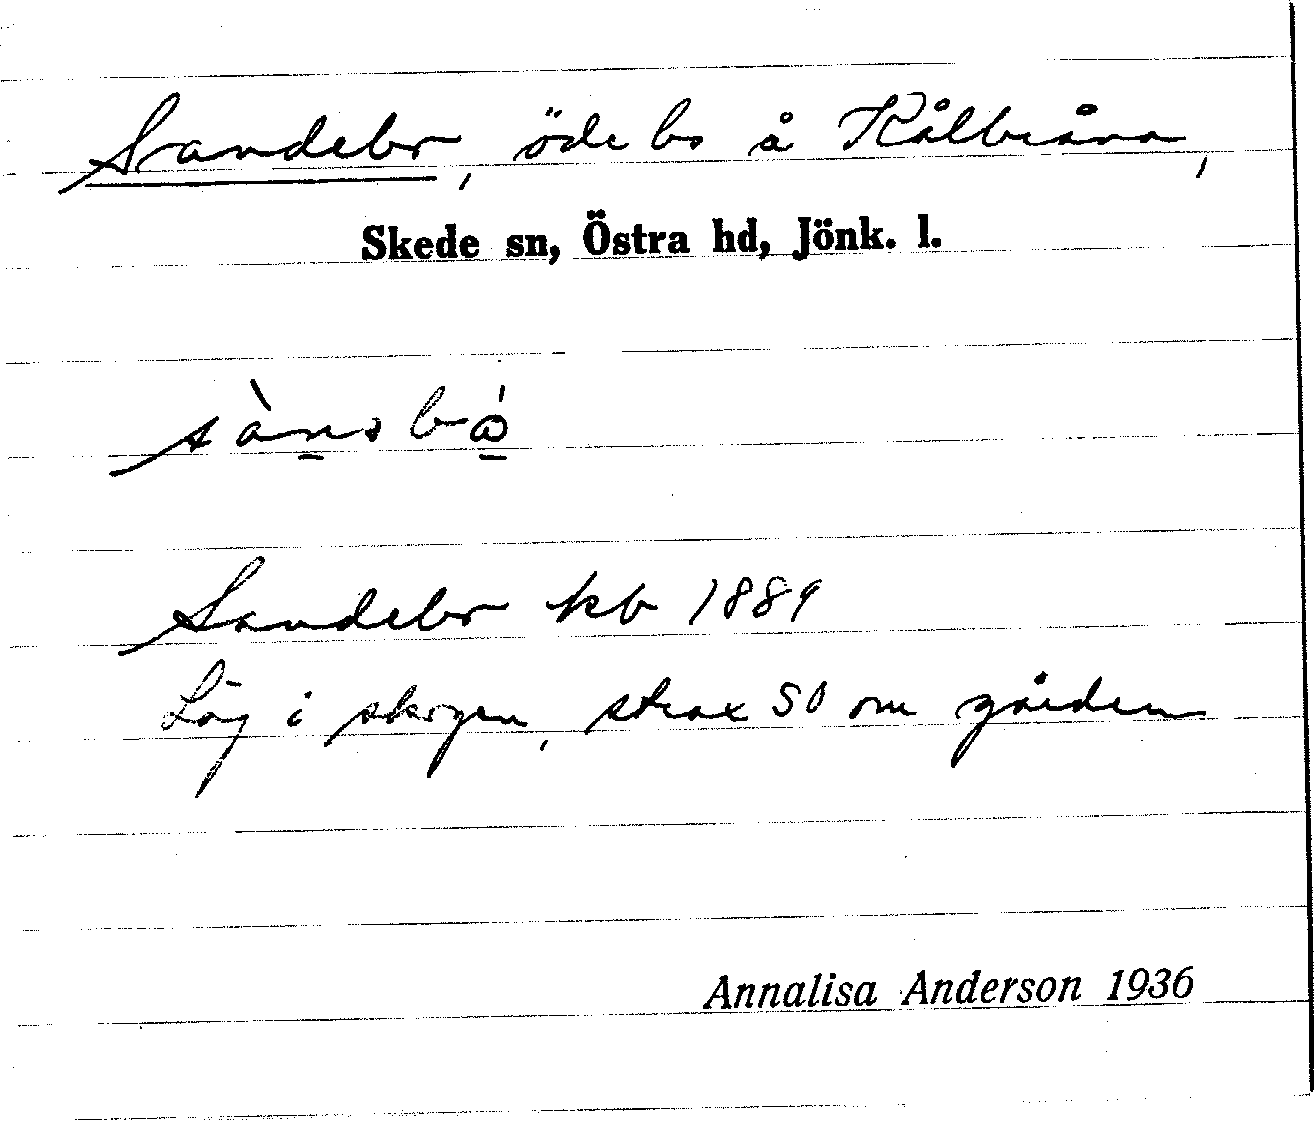 Sandebo, öde bs å Kålbråna,
Skede sn, Östra hd, Jönk. l.
Sandebo kb 1889
Låg i skogen, strax SO om gården
Annalisa Anderson 1936